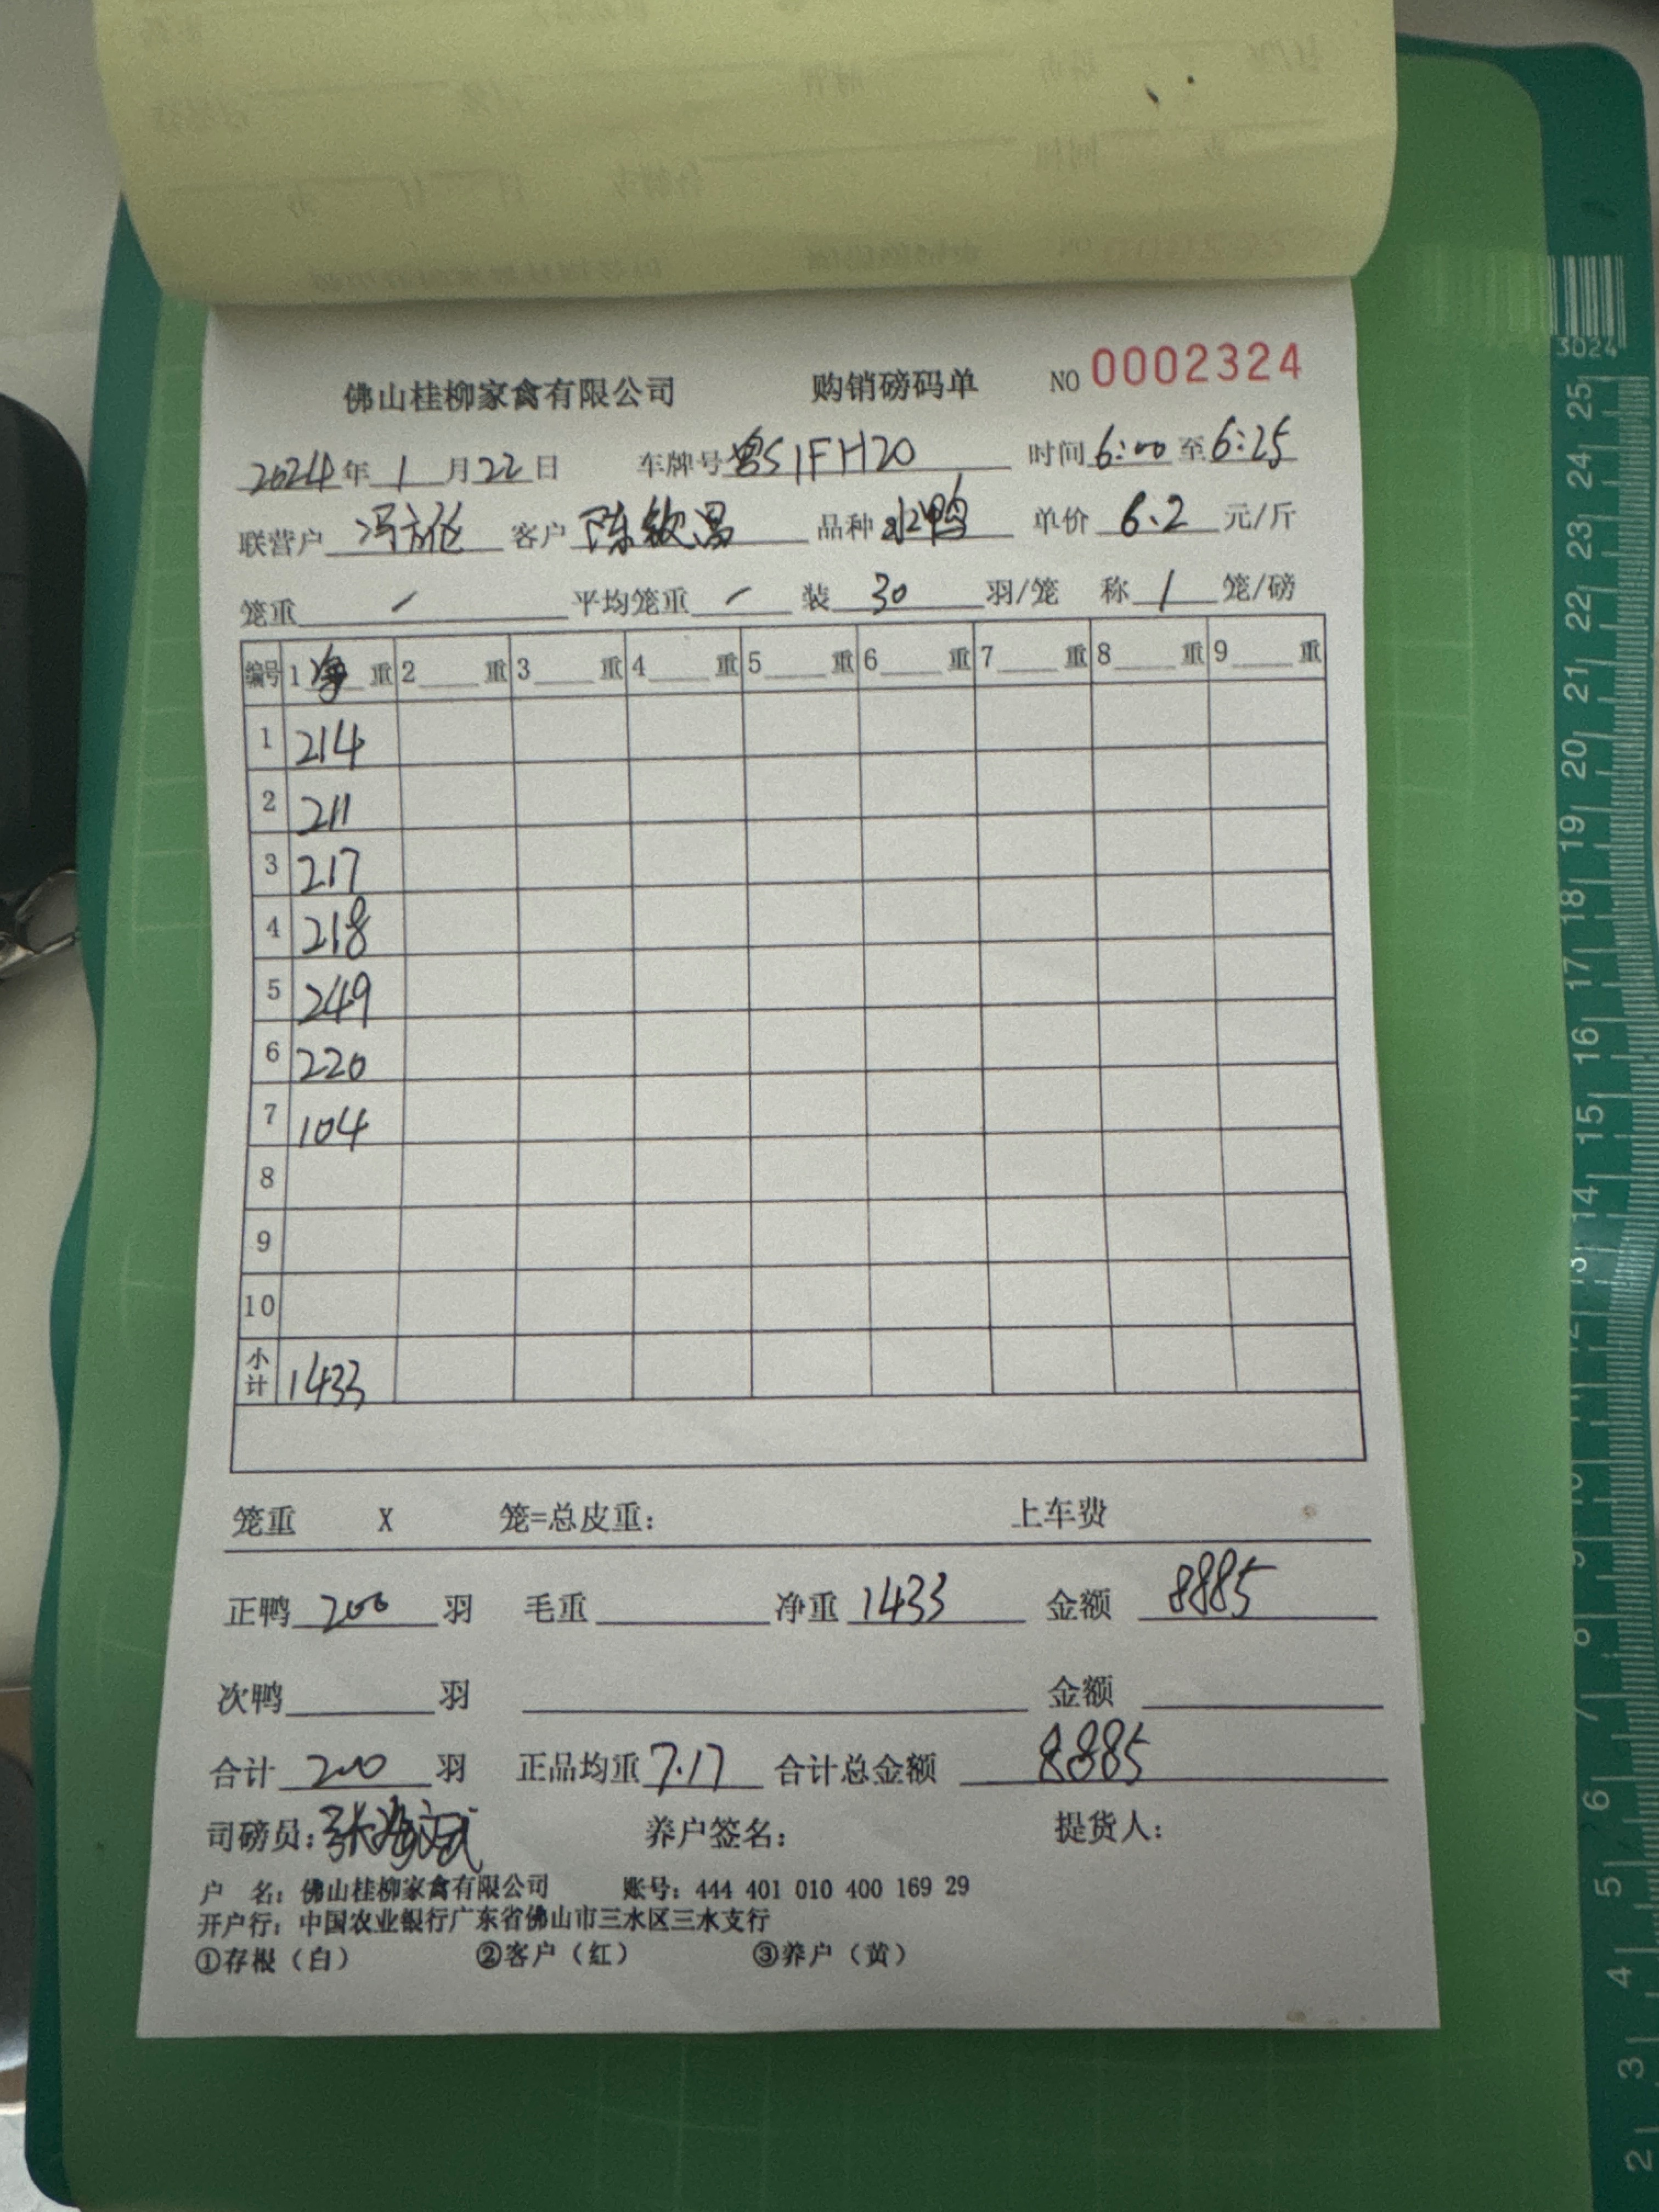 佛山桂柳家禽有限公司 购销磅码单 NO 0002324
2024年1月22日 车牌号粤S1FH20 时间6:00至6:25
联营户 客户陈钦昌 品种水鸭 单价6.2元/斤
笼重 / 平均笼重 / 装30羽/笼 称1笼/磅
编号 1净重 2 重 3 重 4 重 5 重 6 重 7 重 8 重 9 重
1 214
2 211
3 217
4 218
5 249
6 220
7 104
8
9
10
小计 1433
笼重 X 笼=总皮重: 上车费
正鸭200羽 毛重 净重1433 金额8885
次鸭 羽 金额
合计200羽 正品均重7.17 合计总金额8885
司磅员:张 养户签名: 提货人:
户 名: 佛山桂柳家禽有限公司 账号: 444 401 010 400 169 29
开户行: 中国农业银行广东省佛山市三水区三水支行
①存根（白） ②客户（红） ③养户（黄）
3024
25
24
23
22
21
20
19
18
17
16
15
14
13
12
11
10
9
8
7
6
5
4
3
2